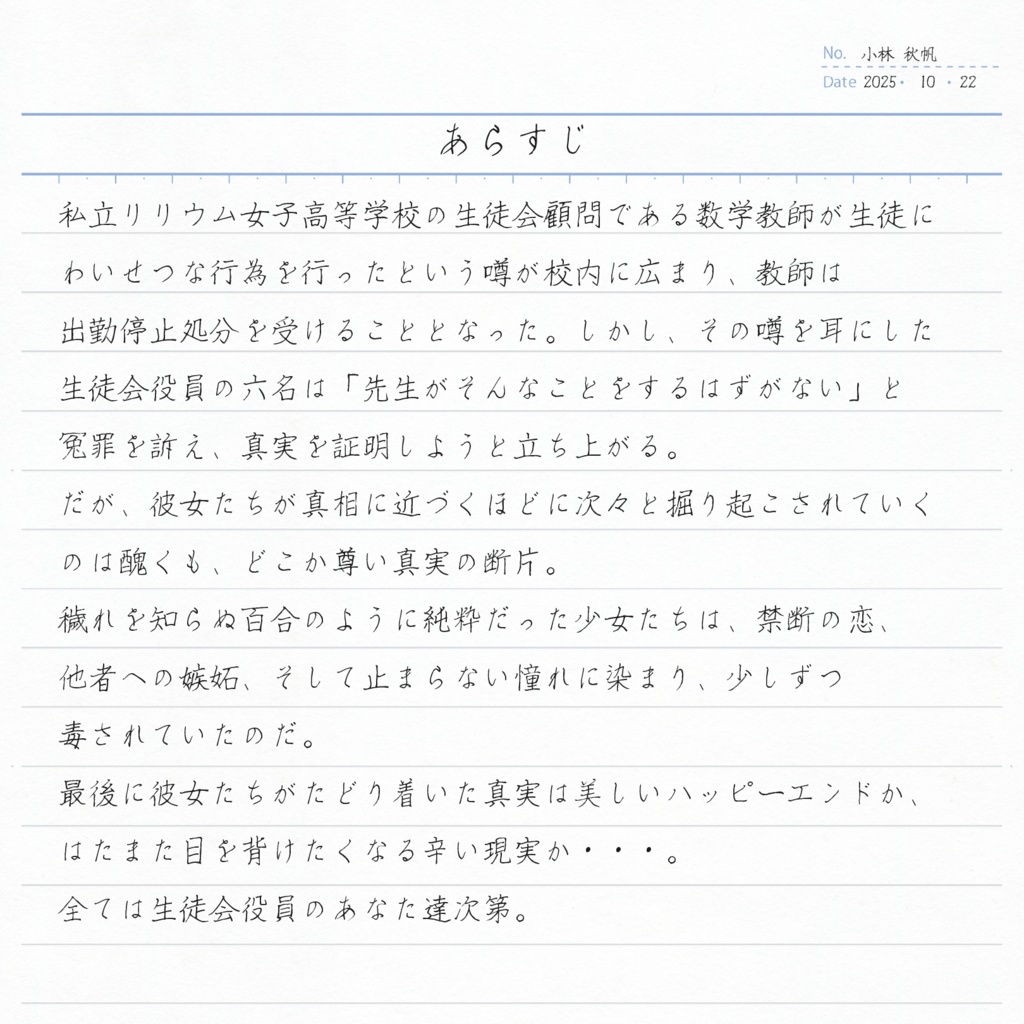 No. 小林 秋帆
Date 2025・ 10 ・ 22
あらすじ
私立リリウム女子高等学校の生徒会顧問である数学教師が生徒に
わいせつな行為を行ったという噂が校内に広まり、教師は
出勤停止処分を受けることとなった。しかし、その噂を耳にした
生徒会役員の六名は「先生がそんなことをするはずがない」と
冤罪を訴え、真実を証明しようと立ち上がる。
だが、彼女たちが真相に近づくほどに次々と掘り起こされていく
のは醜くも、どこか尊い真実の断片。
穢れを知らぬ百合のように純粋だった少女たちは、禁断の恋、
他者への嫉妬、そして止まらない憧れに染まり、少しずつ
毒されていたのだ。
最後に彼女たちがたどり着いた真実は美しいハッピーエンドか、
はたまた目を背けたくなる辛い現実か・・・。
全ては生徒会役員のあなた達次第。